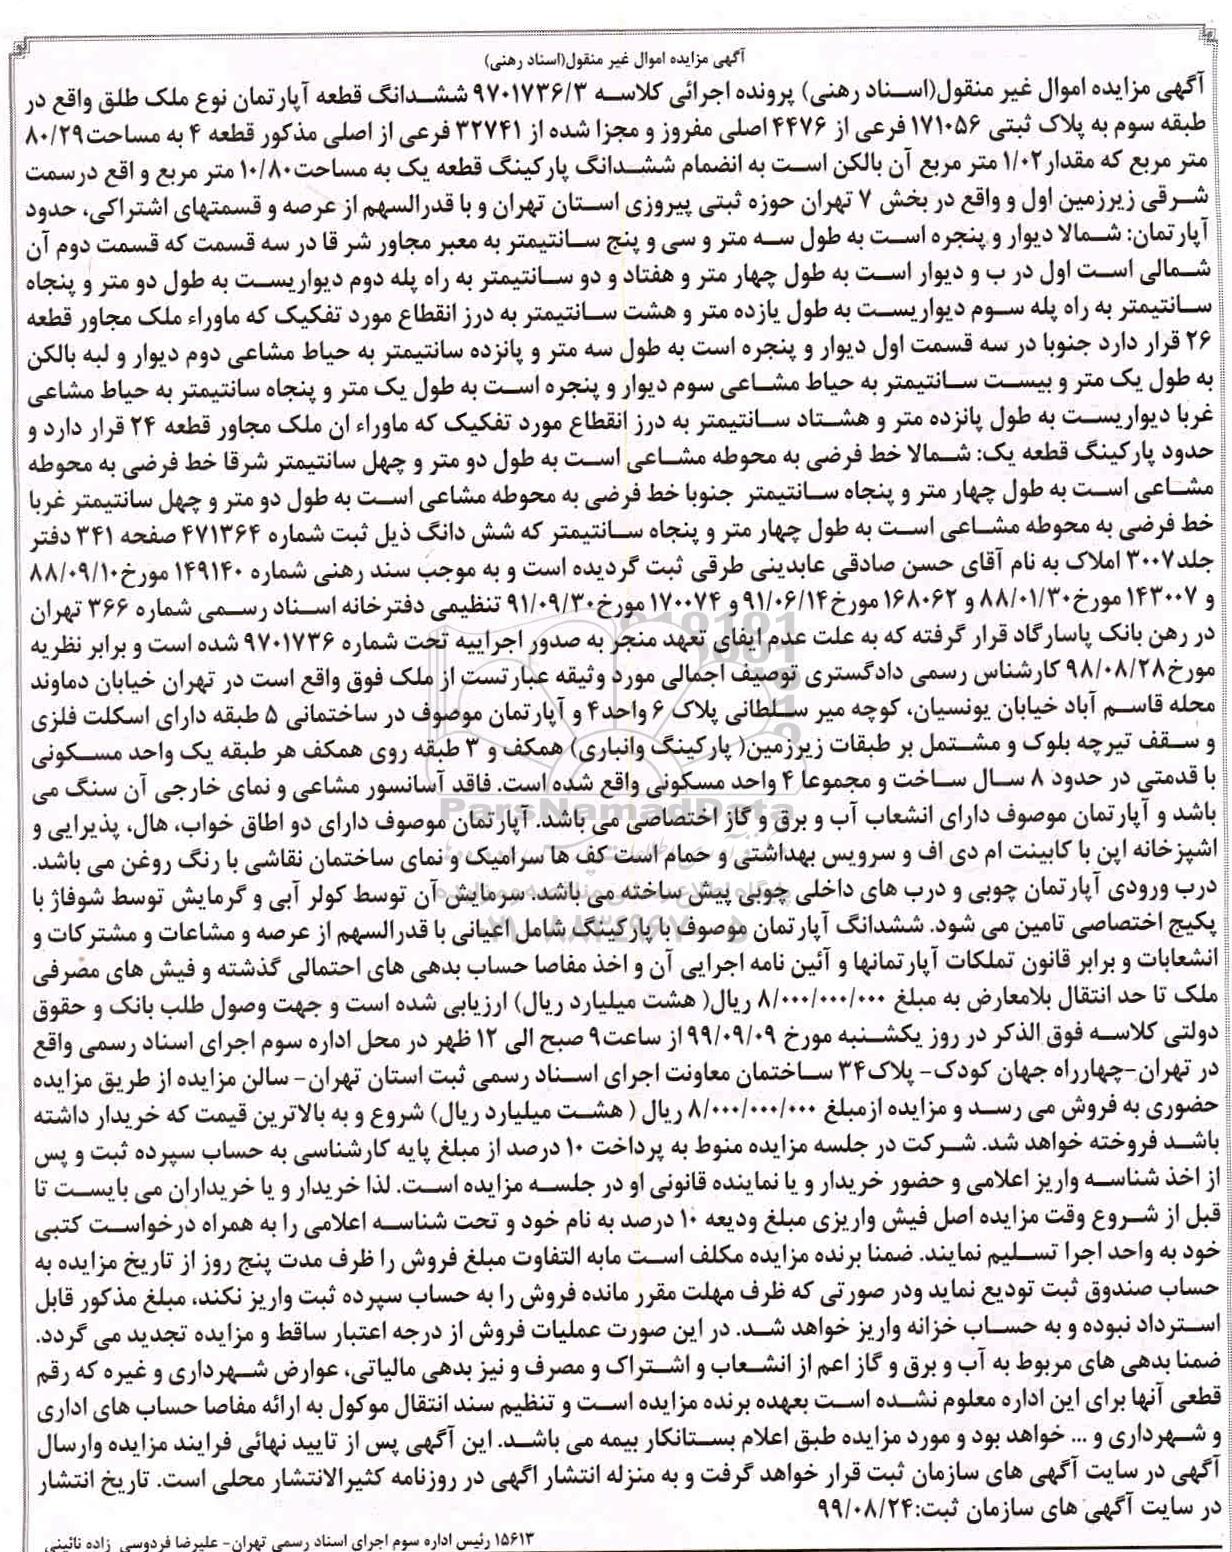 آگهی مزایده اموال غیر منقول(اسناد رهنی)
آگهی مزایده اموال غیر منقول(اسناد رهنی) پرونده اجرائی کلاسه ۹۷۰۱۷۳۶/۳ ششدانگ قطعه آپارتمان نوع ملک طلق واقع در
طبقه سوم به پلاک ثبتی ۱۷۱۰۵۶ فرعی از ۴۴۷۶ اصلی مفروز و مجزا شده از ۳۲۷۴۱ فرعی از اصلی مذکور قطعه ۴ به مساحت۸۰/۲۹
متر مربع که مقدار۱/۰۲ متر مربع آن بالکن است به انضمام ششدانگ پارکینگ قطعه یک به مساحت۱۰/۸۰ متر مربع و اقع درسمت
شرقی زیرزمین اول و واقع در بخش ۷ تهران حوزه ثبتی پیروزی استان تهران و با قدرالسهم از عرصه و قسمتهای اشتراکی، حدود
آپارتمان: شمالا دیوار و پنجره است به طول سه متر و سی و پنج سانتیمتر به معبر مجاور شر قا در سه قسمت که قسمت دوم آن
شمالی است اول در ب و دیوار است به طول چهار متر و هفتاد و دو سانتیمتر به راه پله دوم دیواریست به طول دو متر و پنجاه
سانتیمتر به راه پله سوم دیواریست به طول یازده متر و هشت سانتیمتر به درز انقطاع مورد تفکیک که ماوراء ملک مجاور قطعه
۲۶ قرار دارد جنوبا در سه قسمت اول دیوار و پنجره است به طول سه متر و پانزده سانتیمتر به حیاط مشاعی دوم دیوار و لبه بالکن
به طول یک متر و بیست سانتیمتر به حیاط مشاعی سوم دیوار و پنجره است به طول یک متر و پنجاه سانتیمتر به حیاط مشاعی
غربا دیواریست به طول پانزده متر و هشتاد سانتیمتر به درز انقطاع مورد تفکیک که ماوراء ان ملک مجاور قطعه ۲۴ قرار دارد و
حدود پارکینگ قطعه یک: شمالا خط فرضی به محوطه مشاعی است به طول دو متر و چهل سانتیمتر شرقا خط فرضی به محوطه
مشاعی است به طول چهار متر و پنجاه سانتیمتر جنوبا خط فرضی به محوطه مشاعی است به طول دو متر و چهل سانتیمتر غربا
خط فرضی به محوطه مشاعی است به طول چهار متر و پنجاه سانتیمتر که شش دانگ ذیل ثبت شماره ۴۷۱۳۶۴ صفحه ۳۴۱ دفتر
جلد۳۰۰۷ املاک به نام آقای حسن صادقی عابدینی طرقی ثبت گردیده است و به موجب سند رهنی شماره ۱۴۹۱۴۰ مورخ۸۸/۰۹/۱۰
و ۱۴۳۰۰۷ مورخ۸۸/۰۱/۳۰ و ۱۶۸۰۶۲ مورخ۹۱/۰۶/۱۴ و ۱۷۰۰۷۴ مورخ۹۱/۰۹/۳۰ تنظیمی دفترخانه اسناد رسمی شماره ۳۶۶ تهران
در رهن بانک پاسارگاد قرار گرفته که به علت عدم ایفای تعهد منجر به صدور اجراییه تحت شماره ۹۷۰۱۷۳۶ شده است و برابر نظریه
مورخ۹۸/۰۸/۲۸ کارشناس رسمی دادگستری توصیف اجمالی مورد وثیقه عبارتست از ملک فوق واقع است در تهران خیابان دماوند
محله قاسم آباد خیابان یونسیان، کوچه میر سلطانی پلاک ۶ واحد۴ و آپارتمان موصوف در ساختمانی ۵ طبقه دارای اسکلت فلزی
و سقف تیرچه بلوک و مشتمل بر طبقات زیرزمین( پارکینگ وانباری) همکف و ۳ طبقه روی همکف هر طبقه یک واحد مسکونی
با قدمتی در حدود ۸ سال ساخت و مجموعا ۴ واحد مسکونی واقع شده است. فاقد آسانسور مشاعی و نمای خارجی آن سنگ می
باشد و آپارتمان موصوف دارای انشعاب آب و برق و گاز اختصاصی می باشد. آپارتمان موصوف دارای دو اطاق خواب، هال، پذیرایی و
اشپزخانه اپن با کابینت ام دی اف و سرویس بهداشتی و حمام است کف ها سرامیک و نمای ساختمان نقاشی با رنگ روغن می باشد.
درب ورودی آپارتمان چوبی و درب های داخلی چوبی پیش ساخته می باشد. سرمایش آن توسط کولر آبی و گرمایش توسط شوفاژ با
پکیج اختصاصی تامین می شود. ششدانگ آپارتمان موصوف با پارکینگ شامل اعیانی با قدرالسهم از عرصه و مشاعات و مشترکات و
انشعابات و برابر قانون تملکات آپارتمانها و آئین نامه اجرایی آن و اخذ مفاصا حساب بدهی های احتمالی گذشته و فیش های مصرفی
ملک تا حد انتقال بلامعارض به مبلغ ۸/۰۰۰/۰۰۰/۰۰۰ ریال( هشت میلیارد ریال) ارزیابی شده است و جهت وصول طلب بانک و حقوق
دولتی کلاسه فوق الذکر در روز یکشنبه مورخ ۹۹/۰۹/۰۹ از ساعت۹ صبح الی ۱۲ ظهر در محل اداره سوم اجرای اسناد رسمی واقع
در تهران-چهارراه جهان کودک- پلاک۳۴ ساختمان معاونت اجرای اسناد رسمی ثبت استان تهران- سالن مزایده از طریق مزایده
حضوری به فروش می رسد و مزایده ازمبلغ ۸/۰۰۰/۰۰۰/۰۰۰ ریال ( هشت میلیارد ریال) شروع و به بالاترین قیمت که خریدار داشته
باشد فروخته خواهد شد. شرکت در جلسه مزایده منوط به پرداخت ۱۰ درصد از مبلغ پایه کارشناسی به حساب سپرده ثبت و پس
از اخذ شناسه واریز اعلامی و حضور خریدار و یا نماینده قانونی او در جلسه مزایده است. لذا خریدار و یا خریداران می بایست تا
قبل از شروع وقت مزایده اصل فیش واریزی مبلغ ودیعه ۱۰ درصد به نام خود و تحت شناسه اعلامی را به همراه درخواست کتبی
خود به واحد اجرا تسلیم نمایند. ضمنا برنده مزایده مکلف است مابه التفاوت مبلغ فروش را ظرف مدت پنج روز از تاریخ مزایده به
حساب صندوق ثبت تودیع نماید ودر صورتی که ظرف مهلت مقرر مانده فروش را به حساب سپرده ثبت واریز نکند، مبلغ مذکور قابل
استرداد نبوده و به حساب خزانه واریز خواهد شد. در این صورت عملیات فروش از درجه اعتبار ساقط و مزایده تجدید می گردد.
ضمنا بدهی های مربوط به آب و برق و گاز اعم از انشعاب و اشتراک و مصرف و نیز بدهی مالیاتی، عوارض شهرداری و غیره که رقم
قطعی آنها برای این اداره معلوم نشده است بعهده برنده مزایده است و تنظیم سند انتقال موکول به ارائه مفاصا حساب های اداری
و شهرداری و ... خواهد بود و مورد مزایده طبق اعلام بستانکار بیمه می باشد. این آگهی پس از تایید نهائی فرایند مزایده وارسال
آگهی در سایت آگهی های سازمان ثبت قرار خواهد گرفت و به منزله انتشار اگهی در روزنامه کثیرالانتشار محلی است. تاریخ انتشار
در سایت آگهی های سازمان ثبت:۹۹/۰۸/۲۴
۱۵۶۱۳ رئیس اداره سوم اجرای اسناد رسمی تهران- علیرضا فردوسی زاده نائینی
ParsNamadData